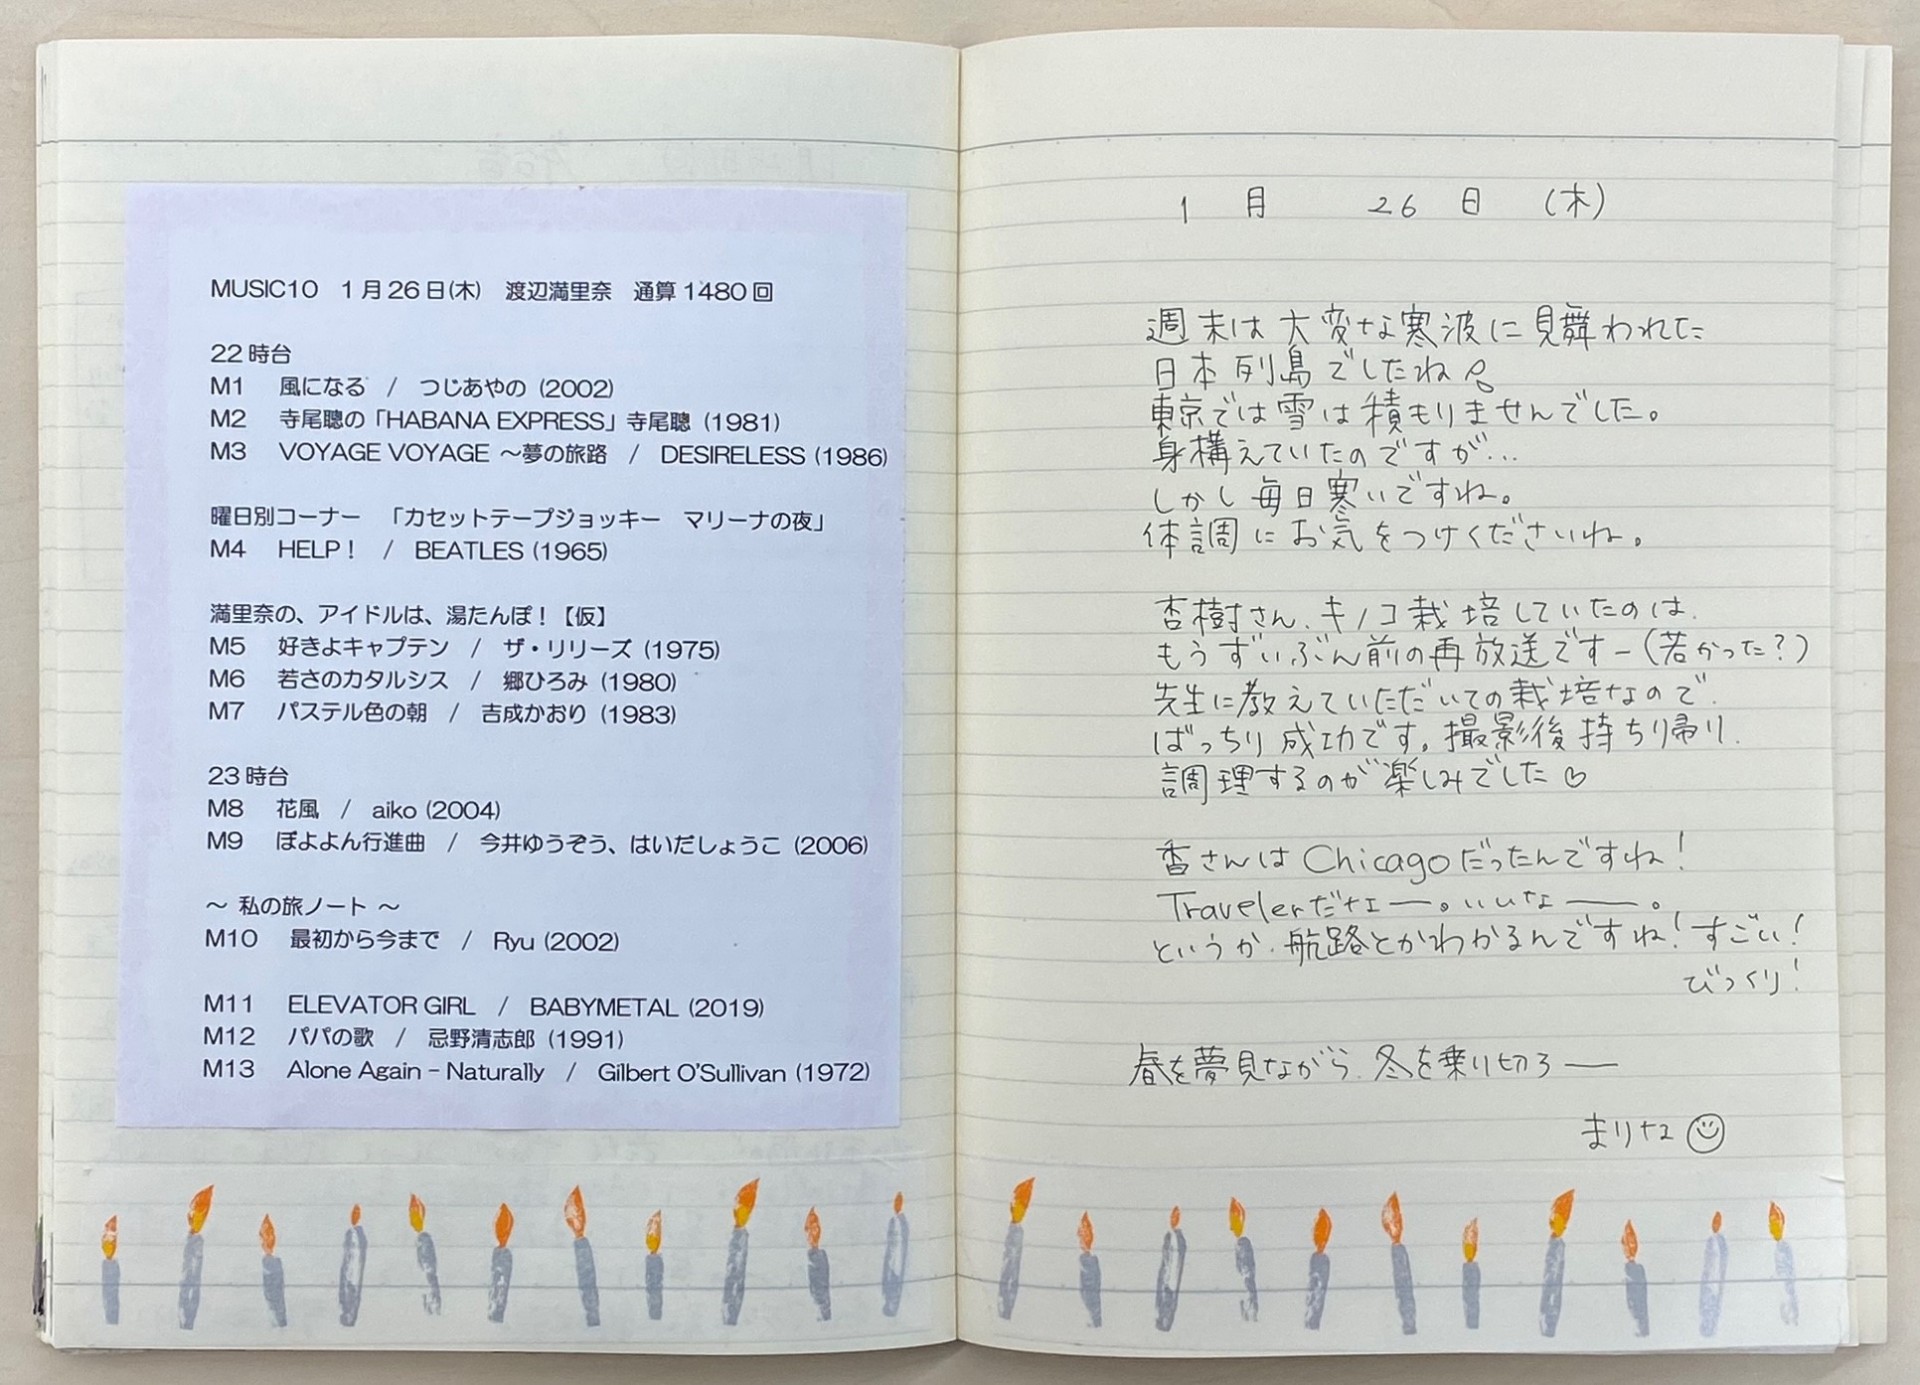 MUSIC10　1月26日(木)　渡辺満里奈　通算1480回
22時台
M1　風になる　/　つじあやの (2002)
M2　寺尾聰の「HABANA EXPRESS」寺尾聰 (1981)
M3　VOYAGE VOYAGE ～夢の旅路　/　DESIRELESS (1986)
曜日別コーナー　「カセットテープジョッキー　マリーナの夜」
M4　HELP！　/　BEATLES (1965)
満里奈の、アイドルは、湯たんぽ！【仮】
M5　好きよキャプテン　/　ザ・リリーズ (1975)
M6　若さのカタルシス　/　郷ひろみ (1980)
M7　パステル色の朝　/　吉成かおり (1983)
23時台
M8　花風　/　aiko (2004)
M9　ぼよよん行進曲　/　今井ゆうぞう、はいだしょうこ (2006)
～ 私の旅ノート ～
M10　最初から今まで　/　Ryu (2002)
M11　ELEVATOR GIRL　/　BABYMETAL (2019)
M12　パパの歌　/　忌野清志郎 (1991)
M13　Alone Again – Naturally　/　Gilbert O'Sullivan (1972)
1月　26日　(木)
週末は大変な寒波に見舞われた
日本列島でしたね。
東京では雪は積もりませんでした。
身構えていたのですが…
しかし毎日寒いですね。
体調にお気をつけくださいね。
杏樹さん、キノコ栽培していたのは、
もうずいぶん前の再放送ですー(若かった？)
先生に教えていただいての栽培なので、
ばっちり成功です。撮影後持ち帰り、
調理するのが楽しみでした♡
香さんはChicagoだったんですね！
Travelerだなー。いいなー。
というか、航路とかわかるんですね！すごい！
びっくり！
春を夢見ながら、冬を乗り切ろー
まりな☺